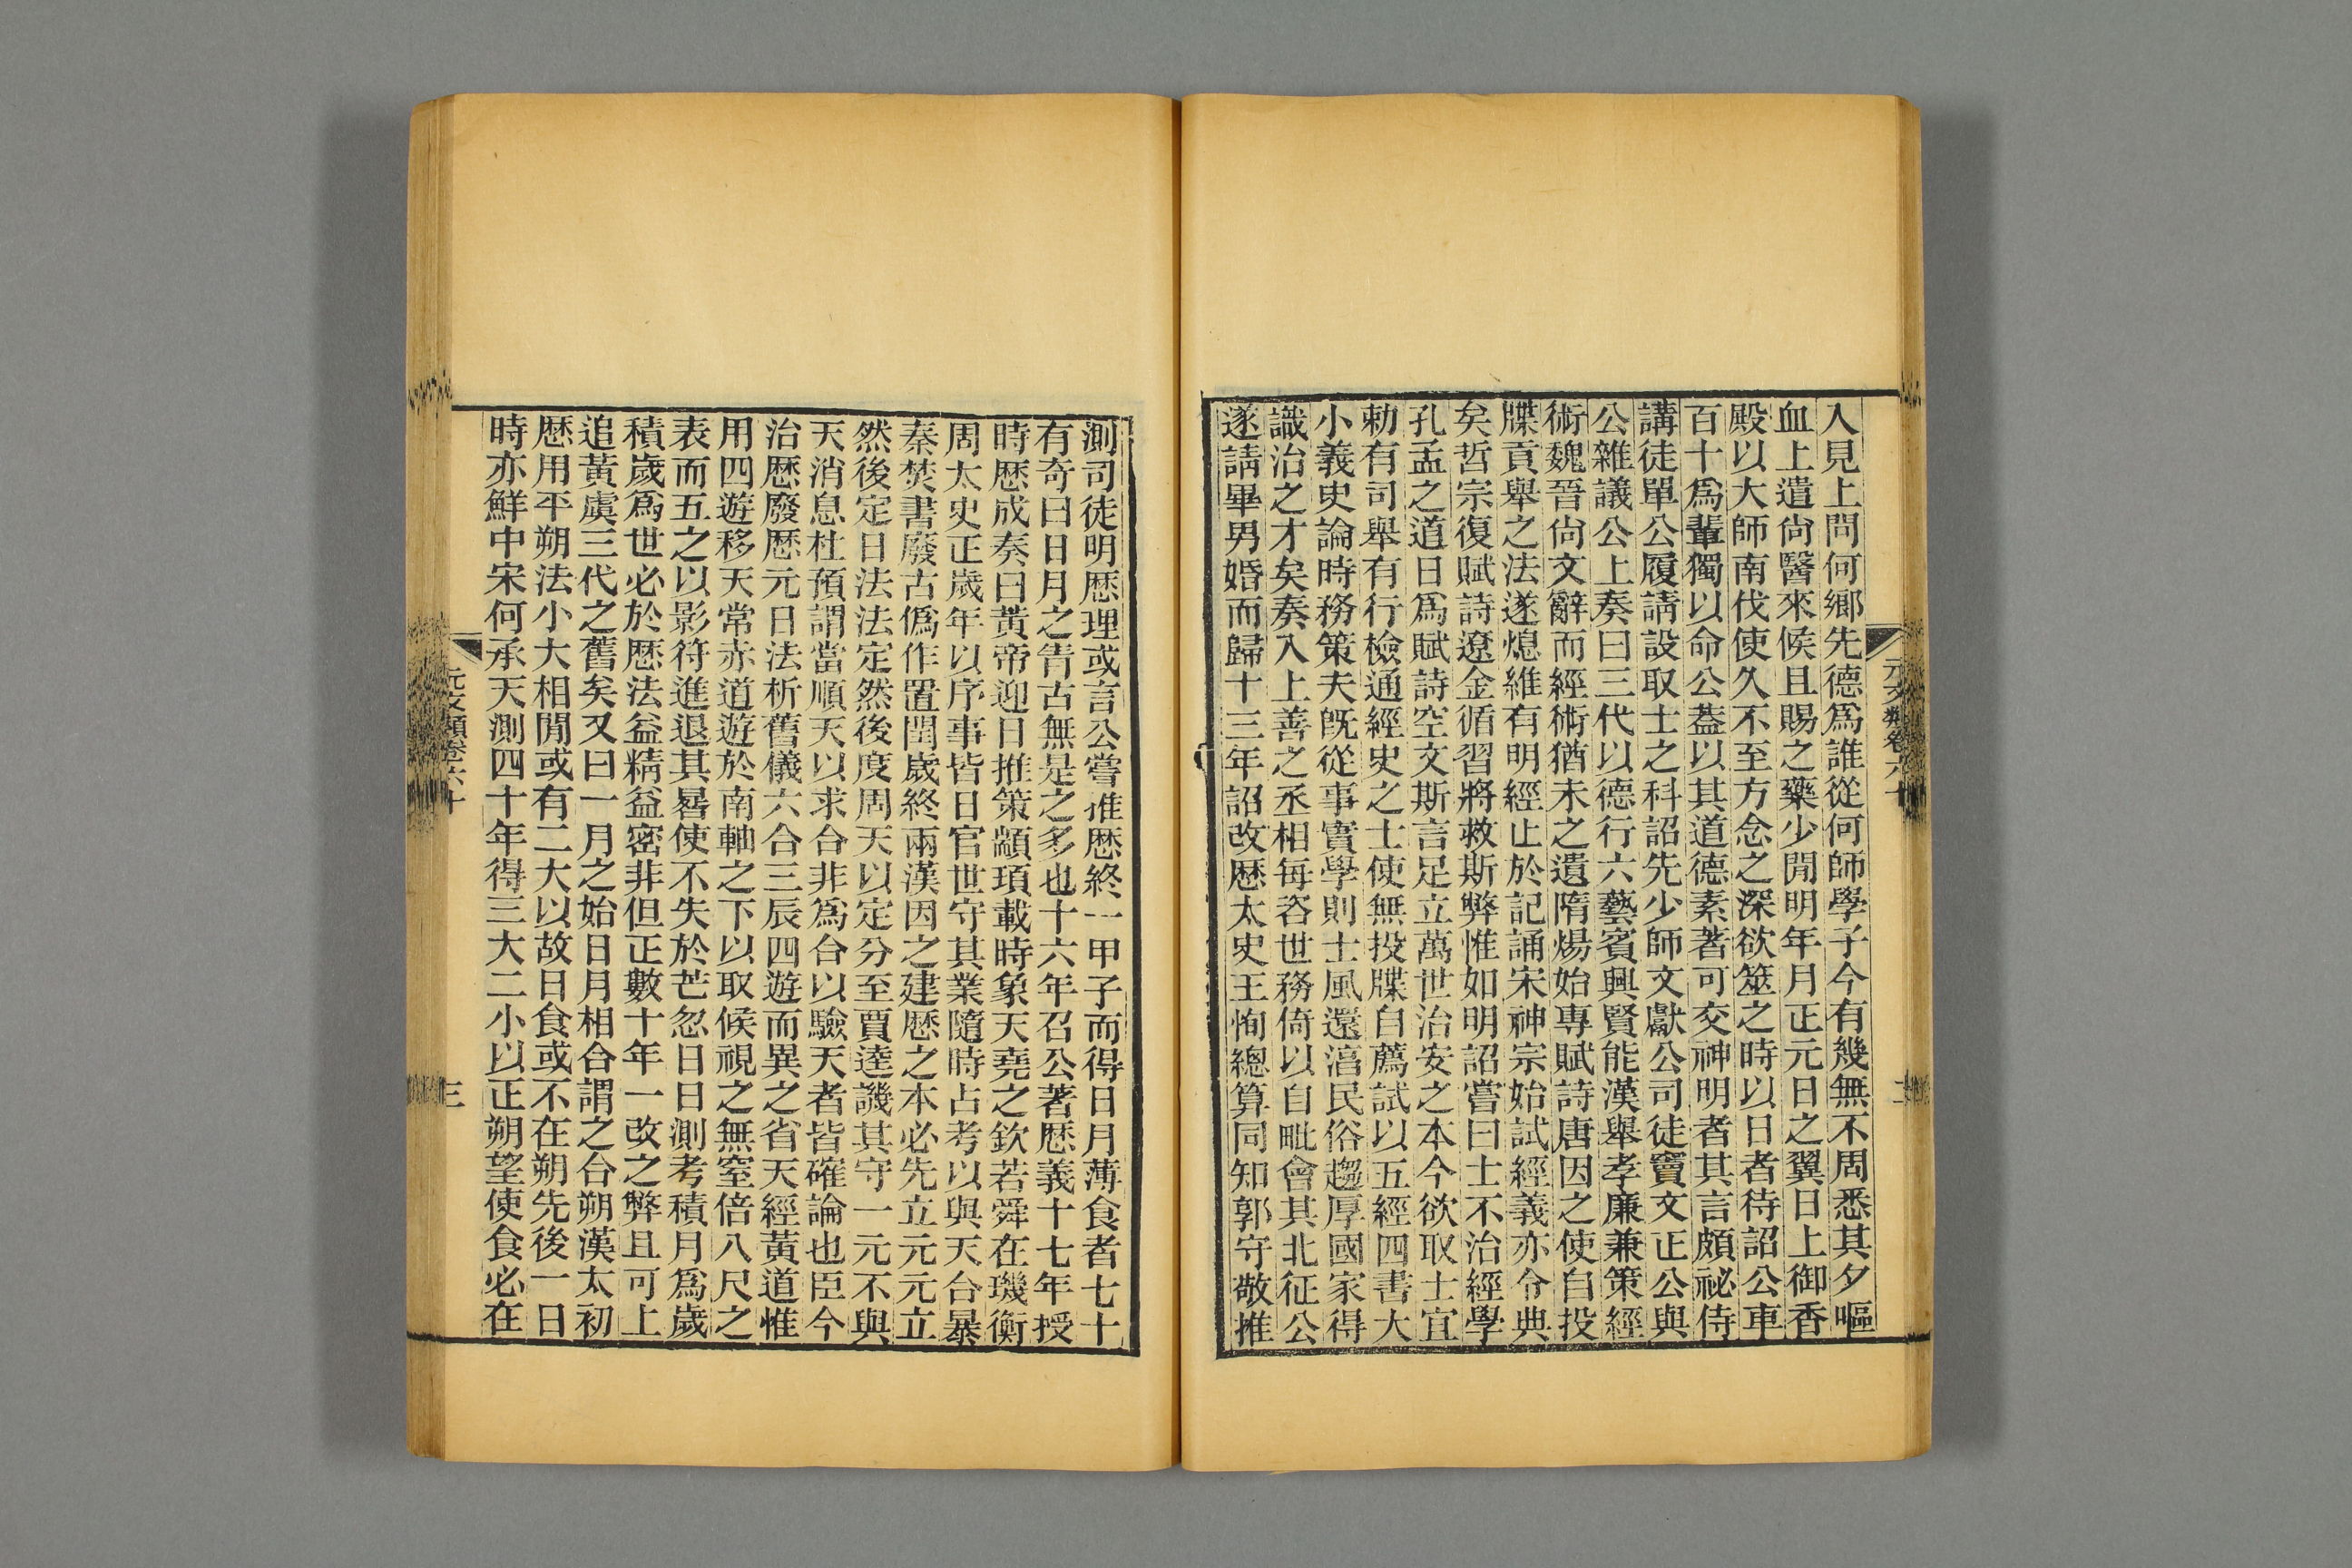 元文類卷六十
二
入見上問何鄉先德爲誰從何師學子今有幾無不周悉其夕嘔
血上遣尙醫來候且賜之藥少閒明年月正元日之翼日上御香
殿以大師南伐使久不至方念之深欲筮之時以日者待詔公車
百十爲輩獨以命公葢以其道德素著可交神明者其言頗祕侍
講徒單公履請設取士之科詔先少師文獻公司徒竇文正公與
公雜議公上奏曰三代以德行六藝賓興賢能漢舉孝廉兼策經
術魏晉尙文辭而經術猶未之遺隋煬始專賦詩唐因之使自投
牒貢舉之法遂熄維有明經止於記誦宋神宗始試經義亦令典
矣哲宗復賦詩遼金循習將救斯弊惟如明詔嘗曰士不治經學
孔孟之道日爲賦詩空文斯言足立萬世治安之本今欲取士宜
勅有司舉有行檢通經史之士使無投牒自薦試以五經四書大
小義史論時務策夫旣從事實學則士風還淳民俗趨厚國家得
識治之才矣奏入上善之丞相每咨世務倚以自毗會其北征公
遂請畢男婚而歸十三年詔改歷太史王恂總算同知郭守敬推
測司徒明歷理或言公嘗推歷終一甲子而得日月薄食者七十
有奇曰日月之眚古無是之多也十六年召公著歷義十七年授
時歷成奏曰黃帝迎日推策顓頊載時象天堯之欽若舜在璣衡
周太史正歲年以序事皆日官世守其業隨時占考以與天合暴
秦焚書廢古僞作置閏歲終兩漢因之建歷之本必先立元元立
然後定日法法定然後度周天以定分至賈逵譏其守一元不與
天消息杜預謂當順天以求合非爲合以驗天者皆確論也臣今
治歷廢歷元日法析舊儀六合三辰四遊而異之省天經黃道惟
用四遊移天常赤道遊於南軸之下以取候視之無窒倍八尺之
表而五之以影符進退其晷使不失於芒忽日日測考積月爲歲
積歲爲世必於歷法益精益密非但正數十年一改之弊且可上
追黃虞三代之舊矣又曰一月之始日月相合謂之合朔漢太初
歷用平朔法小大相閒或有二大以故日食或不在朔先後一日
時亦鮮中宋何承天測四十年得三大二小以正朔望使食必在
元文類卷六十
三